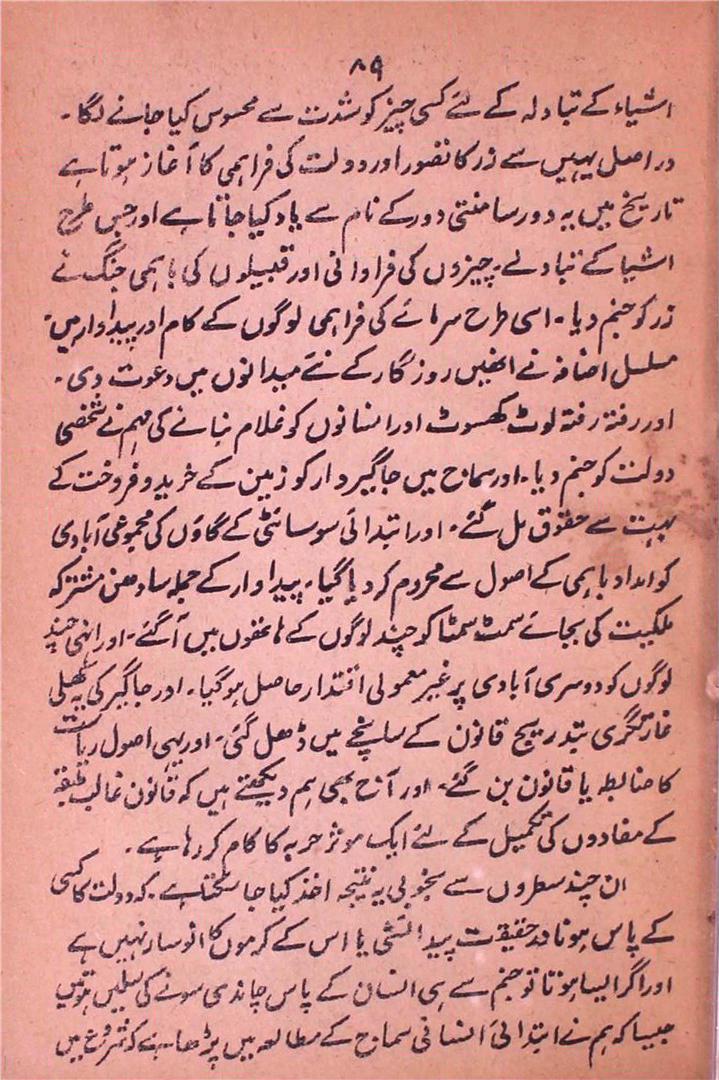 ۸۹
اشیاء کے تبادلہ کے لئے کسی چیز کو شدت سے محسوس کیا جانے لگا۔
دراصل یہیں سے زر کا تصور اور دولت کی فراہمی کا آغاز ہوتا ہے
تاریخ میں یہ دور سامنتی دور کے نام سے یاد کیا جاتا ہے اور جس طرح
اشیا کے تبادلے۔ چیزوں کی فراوانی اور قبیلوں کی باہمی جنگ نے
زر کو جنم دیا۔ اسی طرح سرمائے کی فراہمی لوگوں کے کام اور پیداوار میں
مسلسل اضافہ نے انھیں روزگار کے نئے میدانوں میں دعوت دی۔
اور رفتہ رفتہ لوٹ کھسوٹ اور انسانوں کو غلام بنانے کی مہم نے شخصی
دولت کو جنم دیا۔ اور سماج میں جاگیردار کو زمین کے خرید و فروخت کے
بہت سے حقوق مل گئے۔ اور ابتدائی سوسائٹی کے گاؤں کی مجموعی آبادی
کو امداد باہمی کے اصول سے محروم کر دیا گیا۔ پیداوار کے جملہ سادھن مشترکہ
ملکیت کی بجائے سمٹ سمٹا کو چند لوگوں کے ہاتھوں میں آگئے۔ اور انہی چند
لوگوں کو دوسری آبادی پر غیر معمولی اقتدار حاصل ہو گیا۔ اور جاگیر کی یہ کھلی
غارتگری بتدریج قانون کے سانچے میں ڈھل گئی۔ اور یہی اصول ریاست
کا ضابطہ یا قانون بن گئے۔ اور آج بھی ہم دیکھتے ہیں کہ قانون غالب طبقہ
کے مفادوں کی تکمیل کے لئے ایک موثر حربہ کا کام کر رہا ہے۔
ان چند سطروں سے بخوبی یہ نتیجہ اخذ کیا جا سکتا ہے۔ کہ دولت کا کسی
کے پاس ہونا در حقیقت پیدائشی یا اس کے کرموں کا انوسار نہیں ہے
اور اگر ایسا ہوتا تو جنم سے ہی انسان کے پاس چاندی سونے کی سلیں ہوتیں
جیسا کہ ہم نے ابتدائی انسانی سماج کے مطالعہ میں پڑھا ہے کہ شروع میں